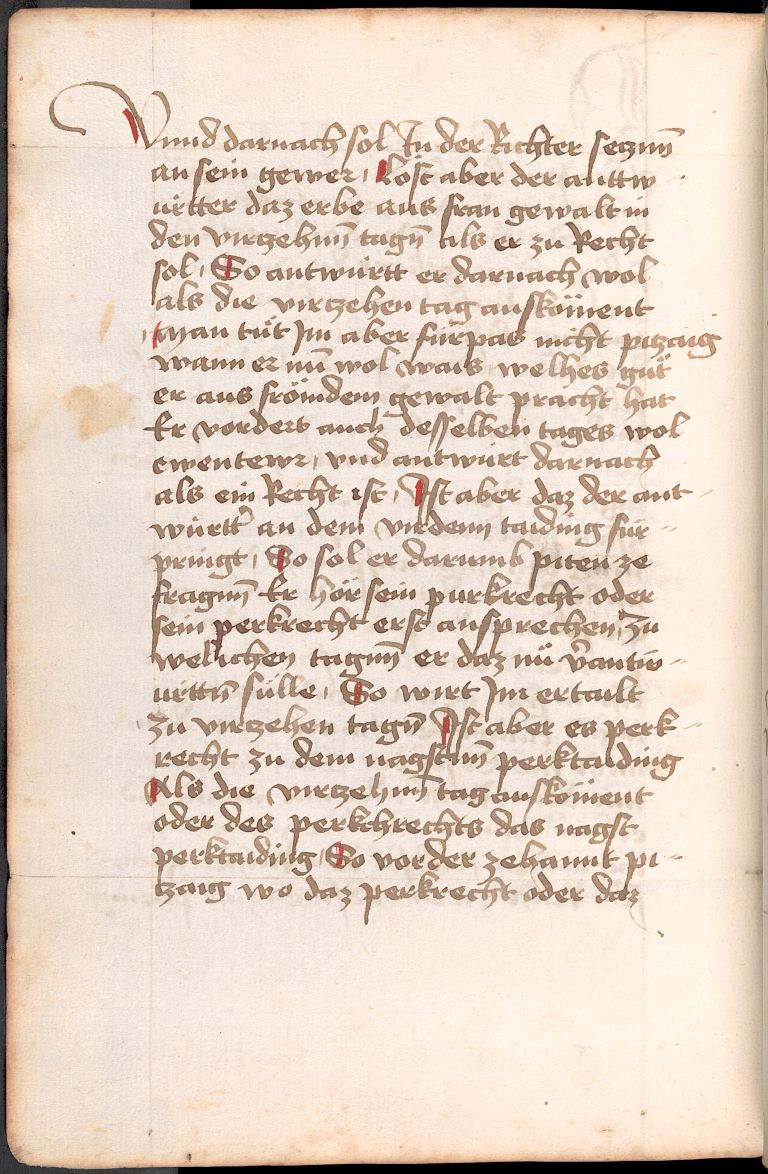 Vnnd darnach sol In der Richter seczn̄
an sein gewer, Löst aber der anttw-
ürtter daz erbe aus fran gewalt in
den virczehnn̄ tagn̄ als er zu Recht
sol, So antwürtt er darnach wol
als die virczehen tag ausköment
man tüt Im aber fürpas nicht piczaig
wann er nu wol wais welhes güt
er aus frömdem gewalt pracht hat
Er vorders auch desselben tages wol
ewentewr, vnd antwürt darnach
als ein Recht ist, Ist aber daz der ant-
württ' an dem virdenn taiding für-
pringt, So sol er darumb piten ze
fragnn̄ Er hör sein purkrecht oder
sein perkrecht erst ansprechen, Zu
welichen tagnn̄ er daz nü v̄antw-
ürttn̄ sülle, So wirt Im ertailt
Zu virczehen tagn̄ Ist aber es perk-
recht zu dem nagstnn̄ perktaiding
Als die virczehnn̄ tag auskönient
oder des perkchrechts das nagst
perktaiding, So vorder zehannt pi-
czaig wo daz perkrecht oder daz